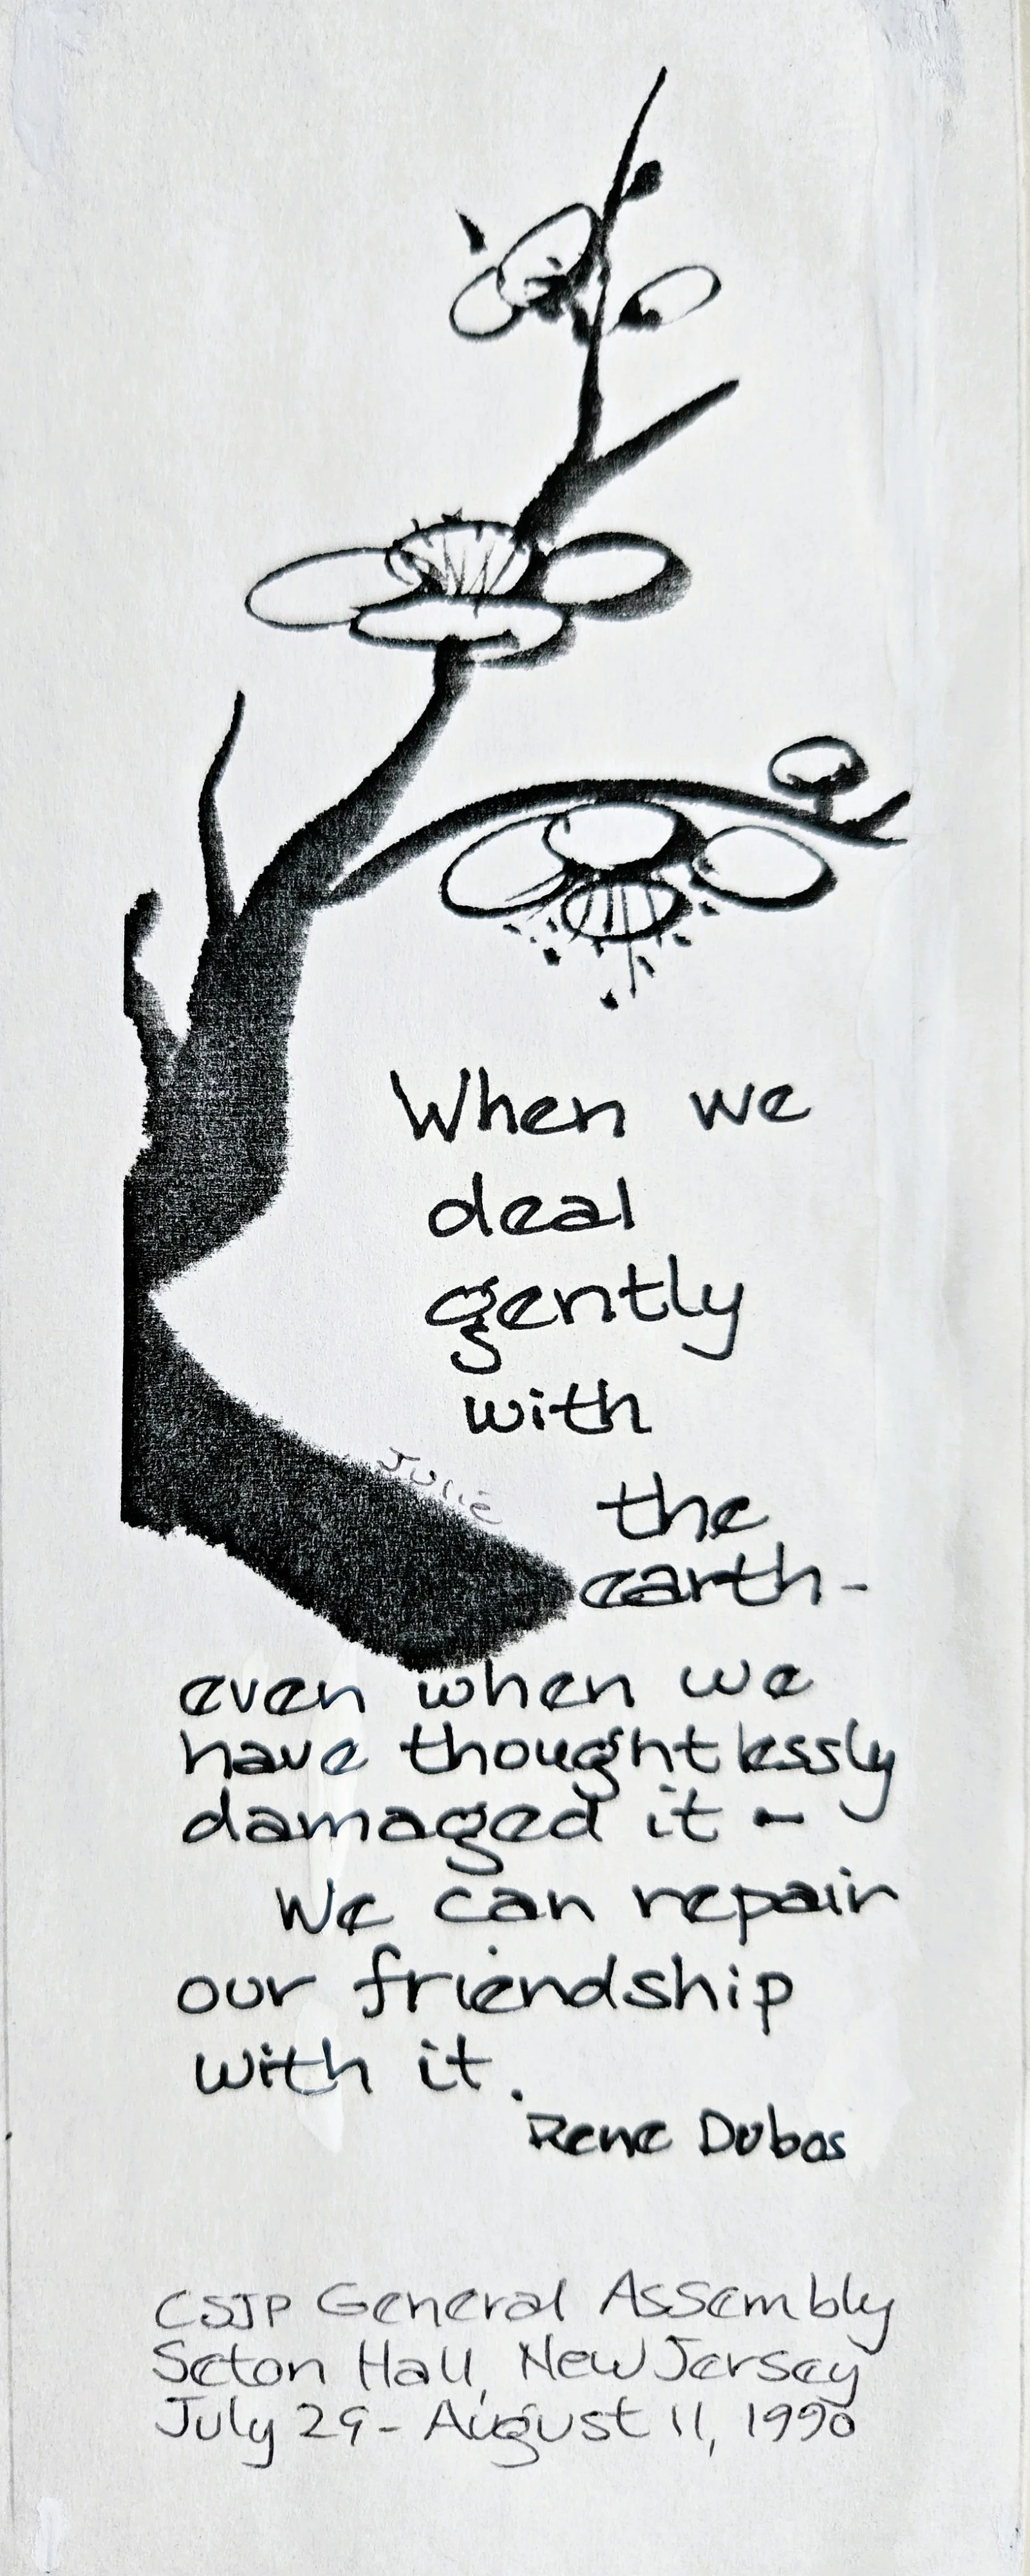 When we
deal
gently
with
Julie
the
earth-
even when we
have thoughtlessly
damaged it -
We can repair
our friendship
with it.
Rene Dubos
CSJP General Assembly
Seton Hall, New Jersey
July 29 - August 11, 1990